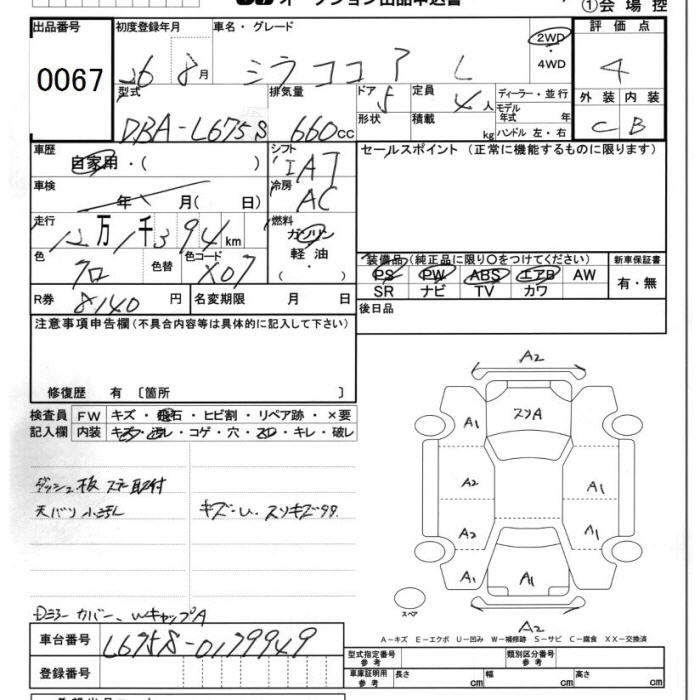 オークション出品申込書
①会場控
出品番号 初度登録年月 車名・グレード 評価点
0067 26 8月 ミラココア L 2WD・4WD 4
型式 排気量 ドア 定員 ディーラー・並行 外装 内装
DBA-L675S 660cc 5 4人 モデル年式 年 C B
形状 積載 kg ハンドル 左・右
車歴 シフト セールスポイント(正常に機能するものに限ります)
自家用・( ) IAT
車検 冷房
年 月( 日) AC
走行 燃料
12万1千394km ガソリン
軽油
・( )
色 色替 色コード 装備品(純正品に限り○をつけてください) 新車保証書
クロ X07 PS PW ABS エアB AW 有・無
SR ナビ TV カワ
R券 8140円 名変期限 月 日 後日品
注意事項申告欄(不具合内容等は具体的に記入して下さい)
修復歴 有 〔箇所 〕
検査員 FW キズ・飛石・ヒビ割・リペア跡・×要
記入欄 内装 キズ・汚レ・コゲ・穴・スレ・キレ・破レ
ダッシュ板 ステ取付
天バリ 小汚レ キズ・U. スリキズ
Dミラーカバー、WキャップA
車台番号 L675S-0179949
登録番号
A2
スリA
A1
A2 A1
A2 A1
A1 A1
スペア
A2
A-キズ E-エクボ U-凹み W-補修跡 S-サビ C-腐食 XX-交換済
型式指定番号 参考 類別区分番号 参考
車庫証明用 参考 長さ cm 幅 cm 高さ cm